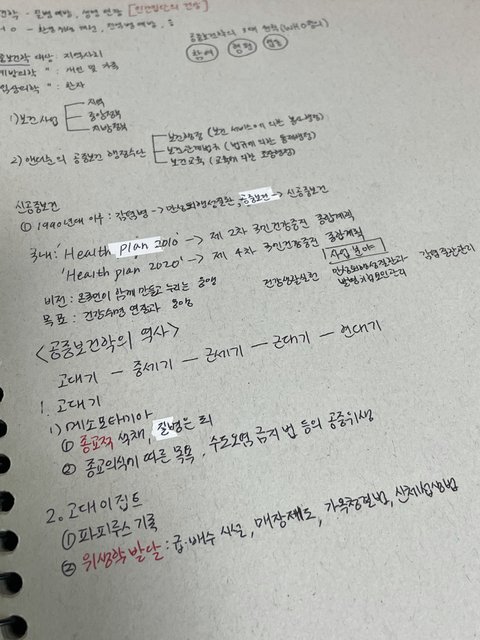 건학 - 질병예방, 생명 연장 [인간집단의 건강]
HO - 환경위생 개선, 전염병 예방, 등
공중보건학의 3대 원칙 (WHO)
참여 형평 협동
공중보건학 대상 : 지역사회
예방의학 " : 개인 및 가족
임상의학 " : 환자
1) 보건사업
지역
중앙정책
지방정책
2) 앤더슨의 공중보건 행정수단
보건행정 (보건 서비스에 의한 봉사행정)
보건관계법규 (법규에 의한 통제행정)
보건교육 (교육에 의한 조장행정)
신공중보건
① 1990년대 이후 : 감염병 -> 만성퇴행성질환, 공중보건 -> 신공중보건
국내 'Health plan 2010' -> 제 2차 국민건강증진 종합계획
'Health plan 2020' -> 제 4차 국민건강증진 종합계획
사업분야
비전 : 온국민이 함께 만들고 누리는
건강생활실천 만성퇴행성질환과 발병위험요인관리 감염질환관리
목표 : 건강수명 연장과
<공중보건학의 역사>
고대기 - 중세기 - 근세기 - 근대기 - 현대기
1. 고대기
1) 메소포타미아
① 종교적 색채, 질병은 죄
② 종교의식에 따른 목욕, 수도오염 금지 법 등의 공중위생
2. 고대 이집트
① 파피루스 기록
② 위생학 발달 : 급·배수 시설, 매장제도, 가옥청결법, 신체